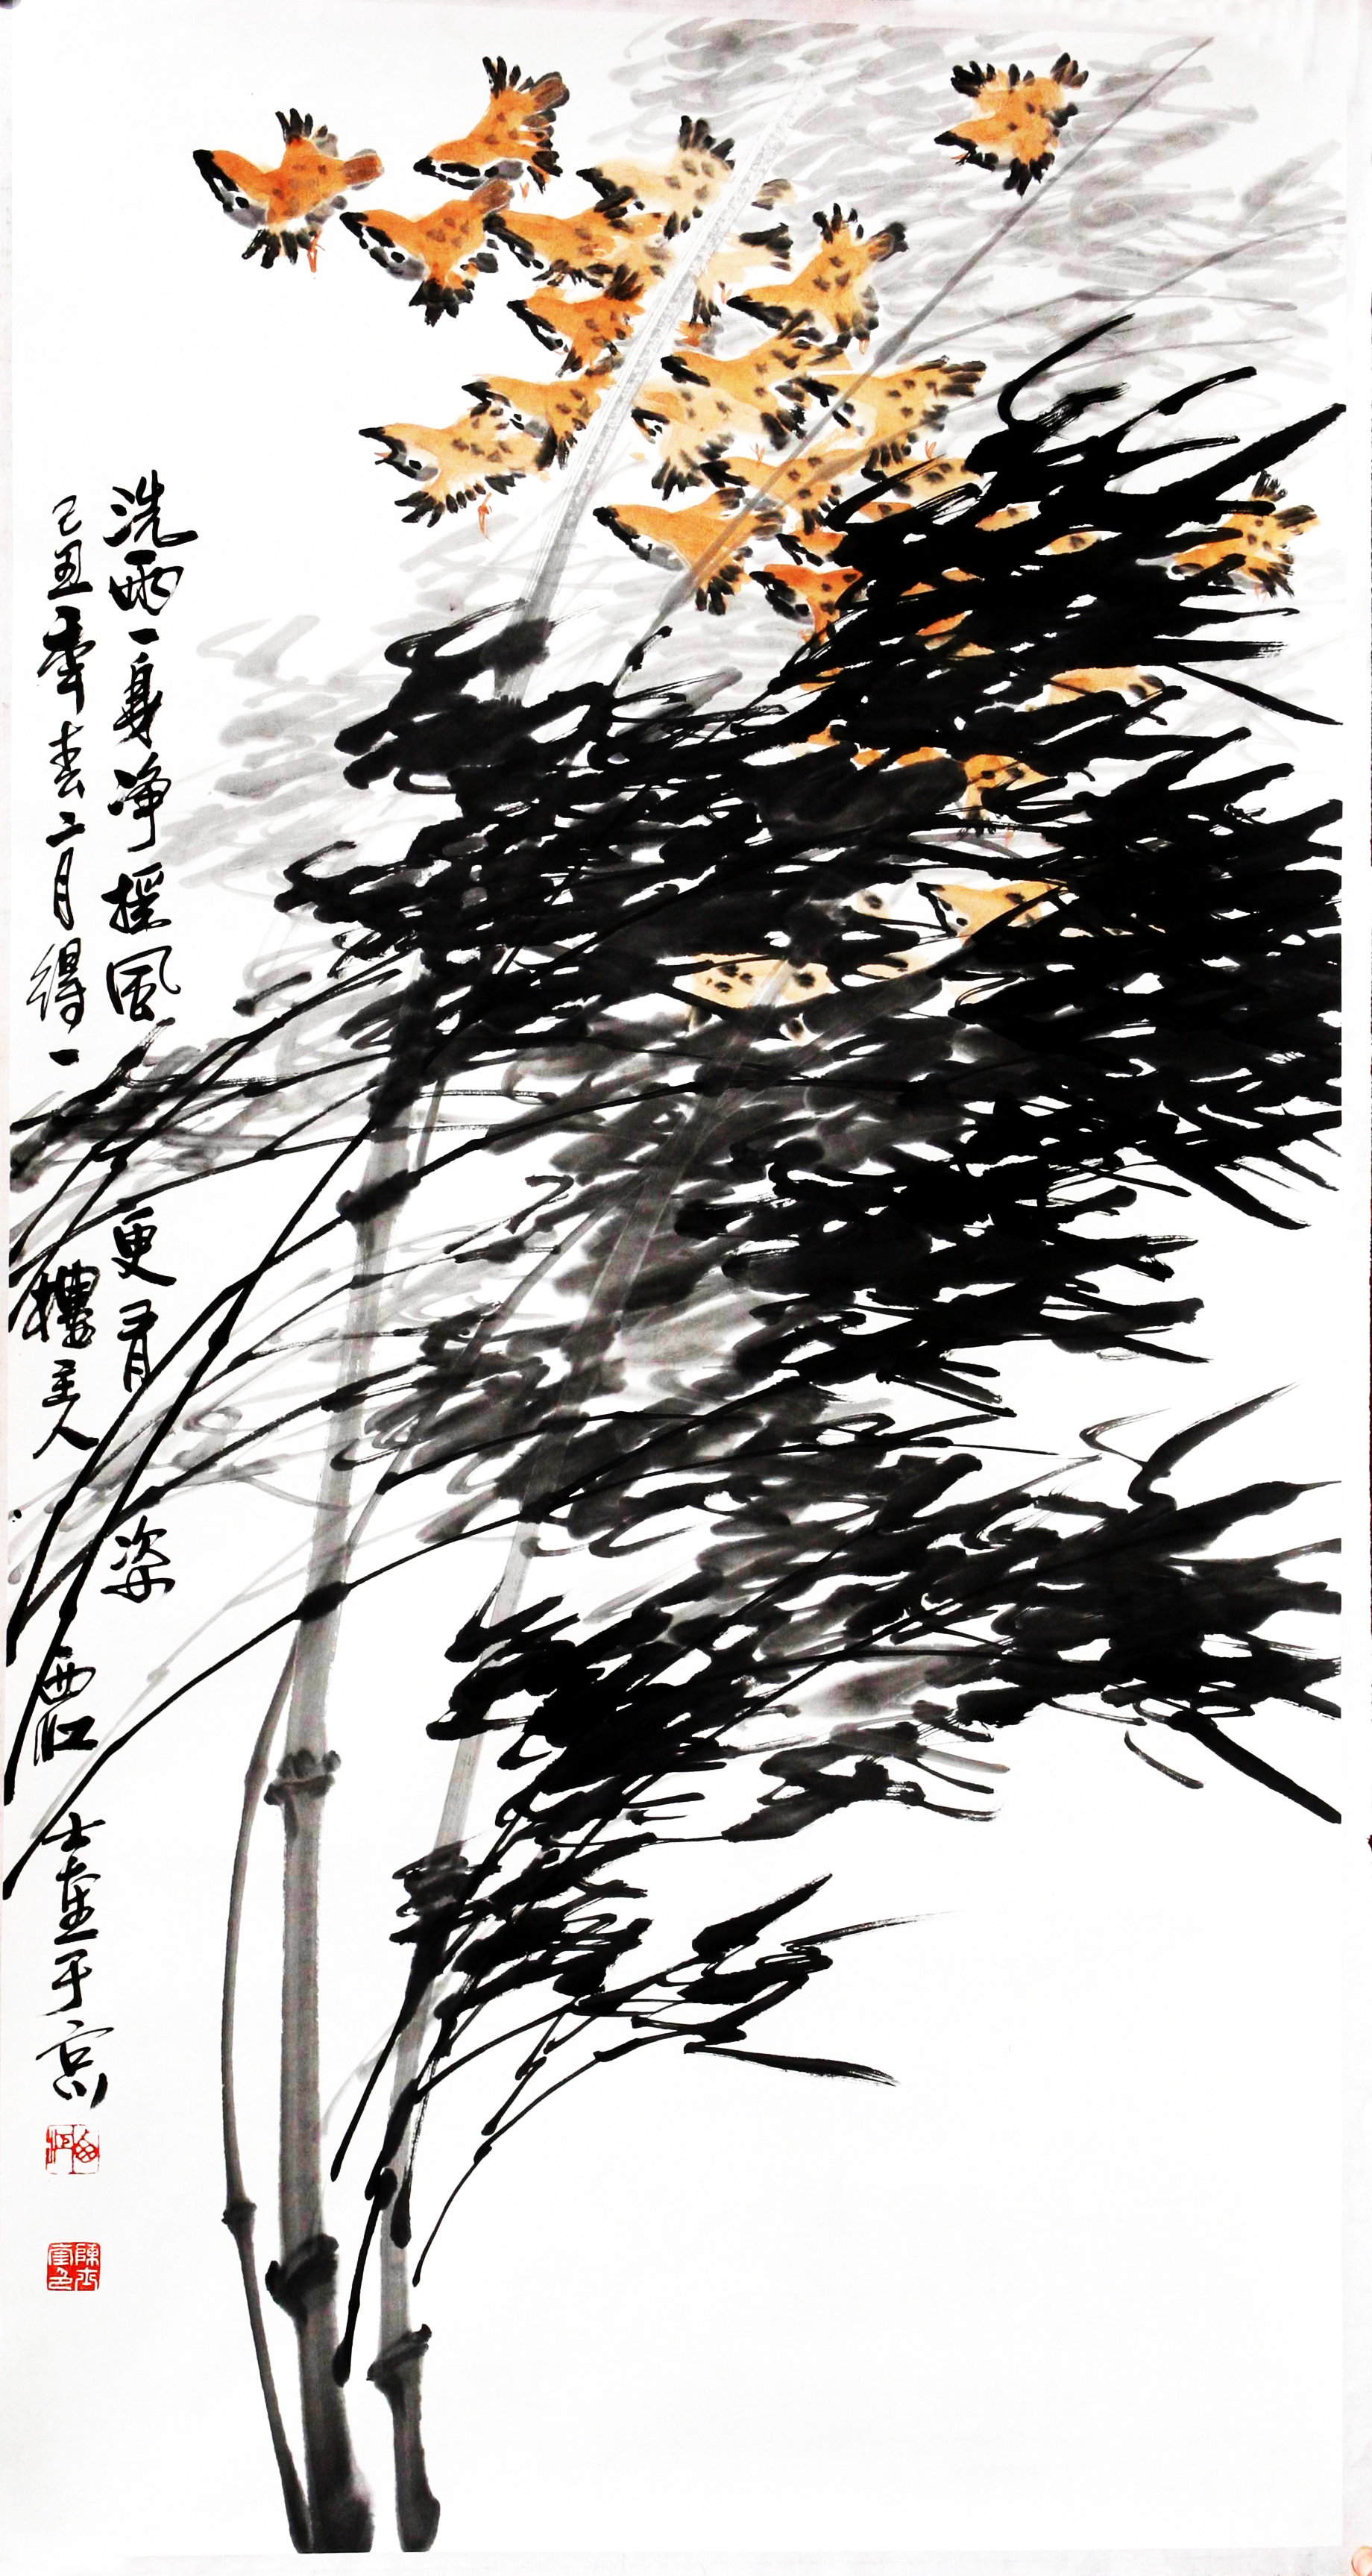 洗雨一身净摇风更有姿
己丑年春二月得一楼主人霞士画于京
陈士奎印